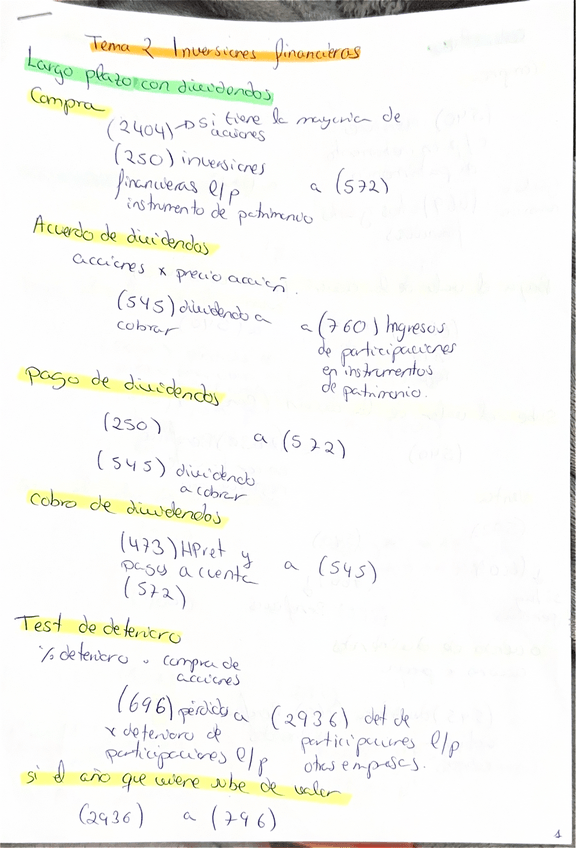 Tema 2 Inversiones financieras
Largo plazo con dividendos
Compra
(2404) → si tiene la mayoria de
acciones
(250) inversiones
financieras l/p a (572)
instrumento de patrimonio
Acuerdo de dividendos
acciones x precio acción.
(545) dividendo a cobrar a (760) Ingresos
de participaciones
en instrumentos
de patrimonio.
pago de dividendos
(250) a (572)
(545) dividendo
a cobrar
cobro de dividendos
(473) HP ret y
pagos a cuenta a (545)
(572)
Test de deterioro
% deterioro · compra de
acciones
(696) pérdida a (2936) det de
x deterioro de participaciones l/p
participaciones l/p otras empresas.
si el año que viene sube de valor
(2936) a (796)
1